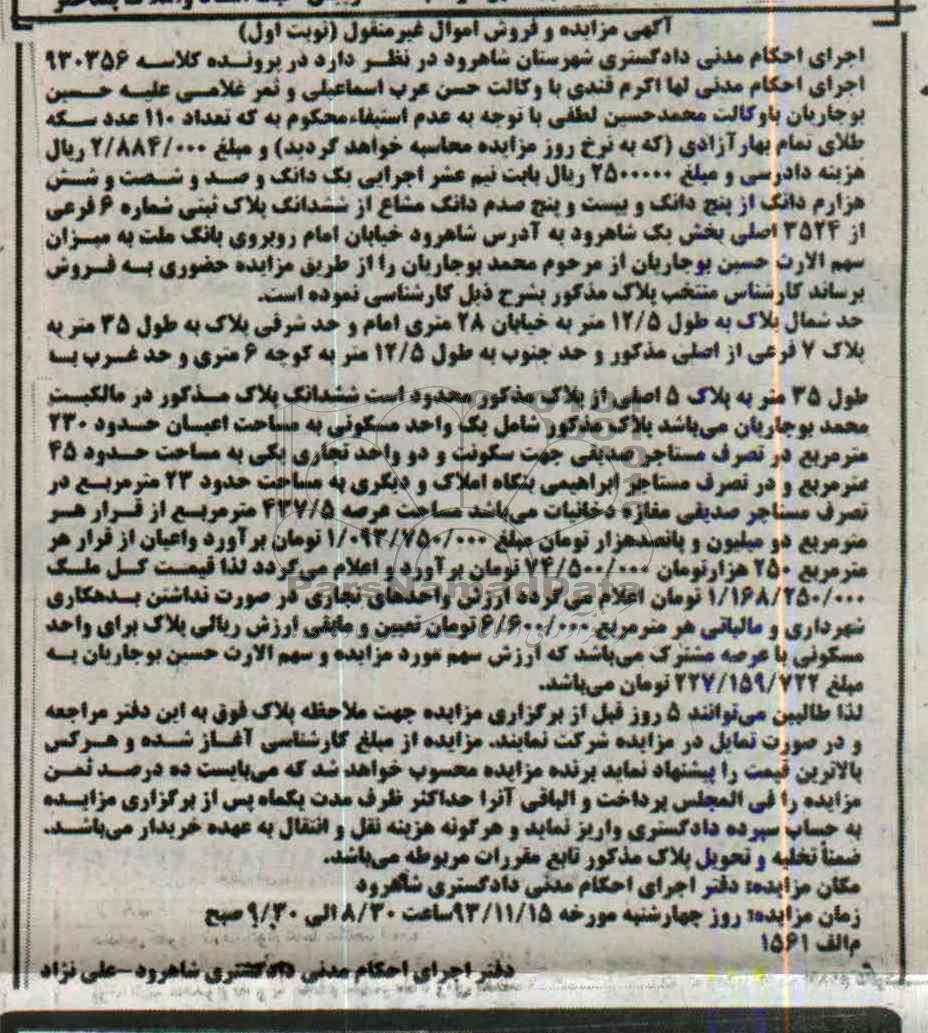 آگهی مزایده و فروش اموال غیرمنقول (نوبت اول)
اجرای احکام مدنی دادگستری شهرستان شاهرود در نظر دارد در پرونده کلاسه ۹۳۰۳۵۶
اجرای احکام مدنی لها اکرم قندی با وکالت حسن عرب اسماعیلی و ثمر غلامی علیه حسین
بوجاریان باوکالت محمدحسین لطفی با توجه به عدم استیفاءمحکوم به که تعداد ۱۱۰ عدد سکه
طلای تمام بهارآزادی (که به نرخ روز مزایده محاسبه خواهد گردید) و مبلغ ۲/۸۸۴/۰۰۰ ریال
هزینه دادرسی و مبلغ ۲۵۰۰۰۰۰ ریال بابت نیم عشر اجرایی یک دانگ و صد و شصت و شش
هزارم دانگ از پنج دانگ و بیست و پنج صدم دانگ مشاع از ششدانگ پلاک ثبتی شماره ۶ فرعی
از ۳۵۲۴ اصلی بخش یک شاهرود به آدرس شاهرود خیابان امام روبروی بانک ملت به میزان
سهم الارث حسین بوجاریان از مرحوم محمد بوجاریان را از طریق مزایده حضوری به فروش
برساند کارشناس منتخب پلاک مذکور بشرح ذیل کارشناسی نموده است.
حد شمال پلاک به طول ۱۲/۵ متر به خیابان ۲۸ متری امام و حد شرقی پلاک به طول ۳۵ متر به
پلاک ۷ فرعی از اصلی مذکور و حد جنوب به طول ۱۲/۵ متر به کوچه ۶ متری و حد غرب به
طول ۳۵ متر به پلاک ۵ اصلی از پلاک مذکور محدود است ششدانگ پلاک مذکور در مالکیت
محمد بوجاریان می‌باشد پلاک مذکور شامل یک واحد مسکونی به مساحت اعیان حدود ۲۳۰
مترمربع در تصرف مستاجر صدیقی جهت سکونت و دو واحد تجاری یکی به مساحت حدود ۴۵
مترمربع و در تصرف مستاجر ابراهیمی بنگاه املاک و دیگری به مساحت حدود ۲۳ مترمربع در
تصرف مستاجر صدیقی مغازه دخانیات می‌باشد مساحت عرصه ۴۳۷/۵ مترمربع از قرار هر
مترمربع دو میلیون و پانصدهزار تومان مبلغ ۱/۰۹۳/۷۵۰/۰۰۰ تومان برآورد واعیان از قرار هر
مترمربع ۲۵۰ هزارتومان ۷۴/۵۰۰/۰۰۰ تومان برآورد و اعلام می‌گردد لذا قیمت کل ملک
۱/۱۶۸/۲۵۰/۰۰۰ تومان اعلام می‌گردد ارزش واحدهای تجاری در صورت نداشتن بدهکاری
شهرداری و مالیاتی هر مترمربع ۶/۶۰۰/۰۰۰ تومان تعیین و مابقی ارزش ریالی پلاک برای واحد
مسکونی با عرصه مشترک می‌باشد که ارزش سهم مورد مزایده و سهم الارث حسین بوجاریان به
مبلغ ۲۲۷/۱۵۹/۷۲۲ تومان می‌باشد.
لذا طالبین می‌توانند ۵ روز قبل از برگزاری مزایده جهت ملاحظه پلاک فوق به این دفتر مراجعه
و در صورت تمایل در مزایده شرکت نمایند. مزایده از مبلغ کارشناسی آغاز شده و هرکس
بالاترین قیمت را پیشنهاد نماید برنده مزایده محسوب خواهد شد که می‌بایست ده درصد ثمن
مزایده را فی المجلس پرداخت و الباقی آنرا حداکثر ظرف مدت یکماه پس از برگزاری مزایده
به حساب سپرده دادگستری واریز نماید و هرگونه هزینه نقل و انتقال به عهده خریدار می‌باشد.
ضمناً تخلیه و تحویل پلاک مذکور تابع مقررات مربوطه می‌باشد.
مکان مزایده: دفتر اجرای احکام مدنی دادگستری شاهرود
زمان مزایده: روز چهارشنبه مورخه ۹۳/۱۱/۱۵ساعت ۸/۳۰ الی ۹/۳۰ صبح
م‌الف ۱۵۶۱
دفتر اجرای احکام مدنی دادگستری شاهرود-علی نژاد
ParsNamadData